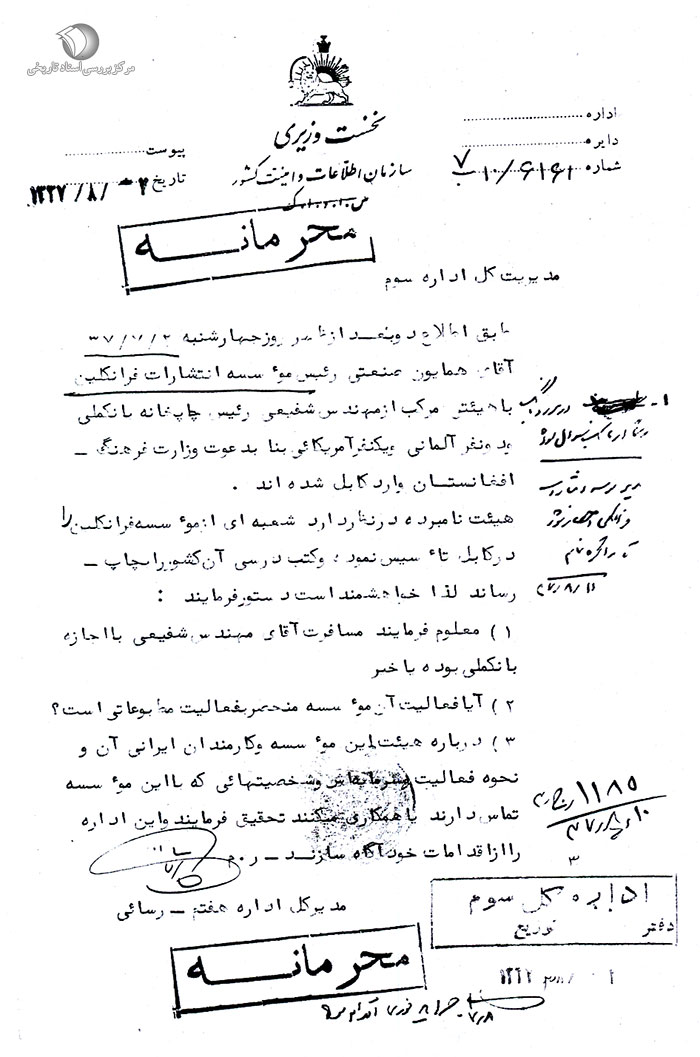 مرکز بررسی اسناد تاریخی
نخست وزیری
سازمان اطلاعات و امنیت کشور
اداره
دایره
شماره
پیوست
تاریخ ۲ /۸/ ۱۳۳۷
محرمانه
مدیریت کل اداره سوم
طبق اطلاع دو بعد از ظهر روز چهارشنبه ۳۷/۷/۲
آقای همایون صنعتی رئیس موٴسسه انتشارات فرانکلین
با هیئتی مرکب از مهندس شفیعی رئیس چاپخانه بانک ملی
و دو نفر آلمانی و یکنفر آمریکائی بنا بدعوت وزارت فرهنگ –
افغانستان وارد کابل شده اند .
هیئت نامبرده در نظر دارد شعبه ای از موٴسسه فرانکلین را
در کابل تاٴسیس نمود ه وکتب درسی آن کشور را بچاپ –
رساند لذا خواهشمند است دستور فرمایند :
۱ ) معلوم فرمایند مسافرت آقای مهندس شفیعی با اجازه
بانک ملی بوده یا خیر
۲ ) آیا فعالیت آن موٴسسه منحصر بفعالیت مطبوعاتی است؟
۳ ) درباره هیئت این موٴسسه وکارمندان ایرانی آن و
نحوه فعالیت وشخصیتهائی که با این موٴسسه
تماس دارند یا همکاری میکنند تحقیق فرمایند واین اداره
را از اقدامات خود آگاه سازند – ر . م
مدیر کل اداره هفتم – رسائی
۱۱۸۵
۳
اداره کل سوم
دفتر توزیع
محرمانه